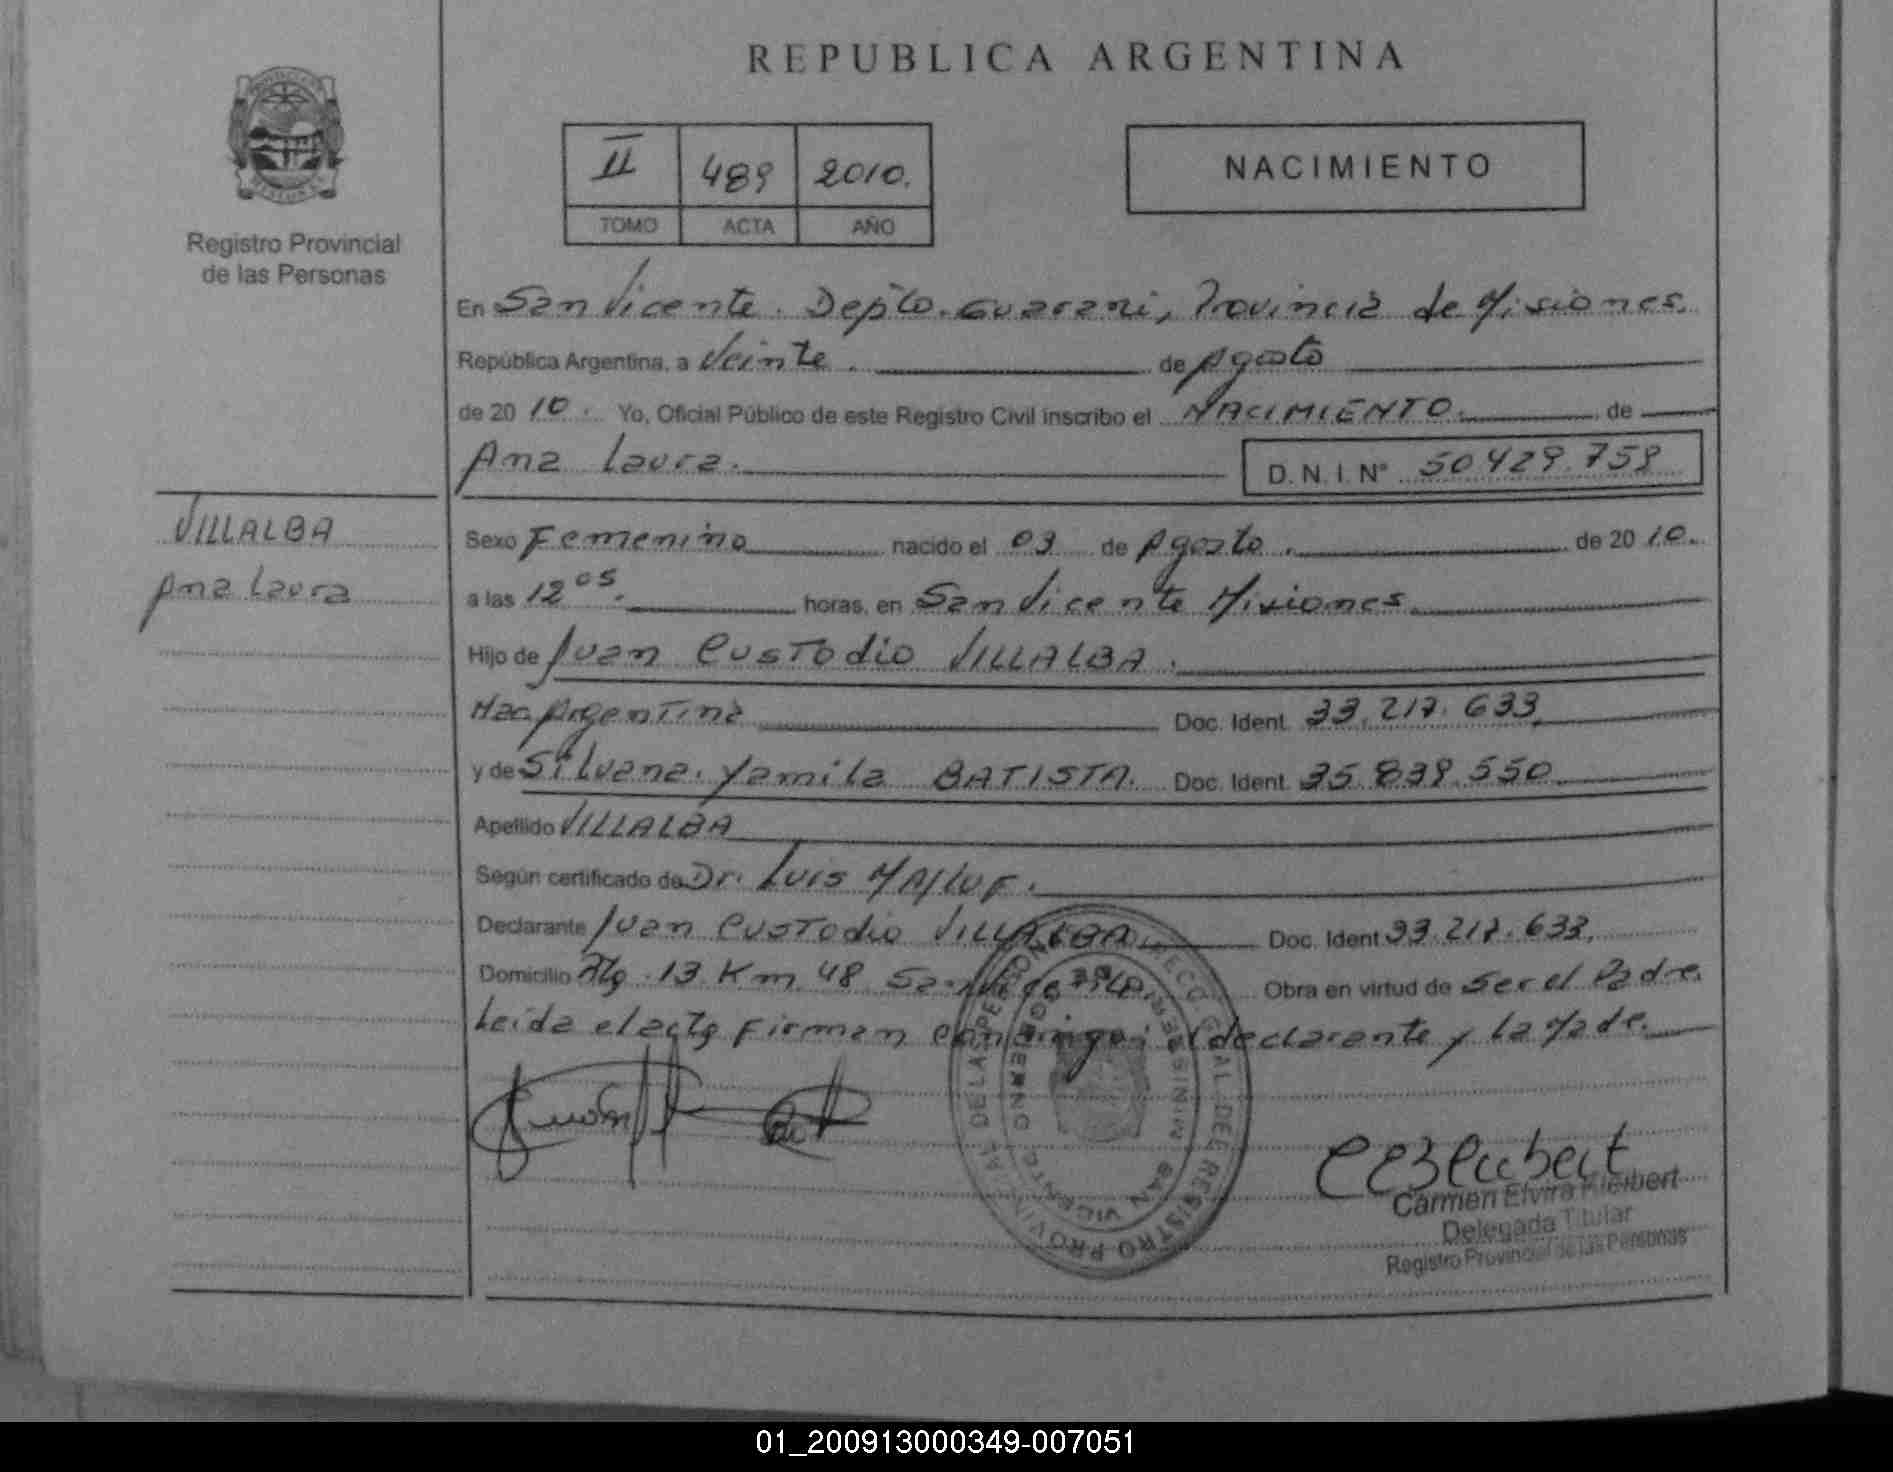 REPUBLICA ARGENTINA
II 489 2010.
TOMO ACTA AÑO
NACIMIENTO
Registro Provincial
de las Personas
En San Vicente. Depto. Guarani, Provincia de Misiones.
República Argentina, a Veinte. de Agosto
de 20 10. Yo, Oficial Público de este Registro Civil inscribo el NACIMIENTO. de
Ana Laura. D. N. I. N° 50429.759
VILLALBA
Ana Laura
Sexo Femenino nacido el 03 de Agosto. de 20 10.
a las 12 05. horas, en San Vicente Misiones.
Hijo de Juan Custodio VILLALBA.
Nac. Argentina Doc. Ident. 33.217.633
y de Silvana. Yamila BATISTA. Doc. Ident. 35.839.550
Apellido VILLALBA
Según certificado de Dr. Luis
Declarante Juan Custodio VILLALBA. Doc. Ident 33.217.633.
Domicilio 13 Km 48 San Vicente. Obra en virtud de ser el Padre.
Leida el acta firman conmigo: el declarante y La Madre.
DIRECC. GRAL. DEL REGISTRO PROVINCIAL DE LA PERSONAS
SAN VICENTE
Carmen Elvira Kleibert
Delegada Titular
Registro Provincial de las Personas
01_200913000349-007051